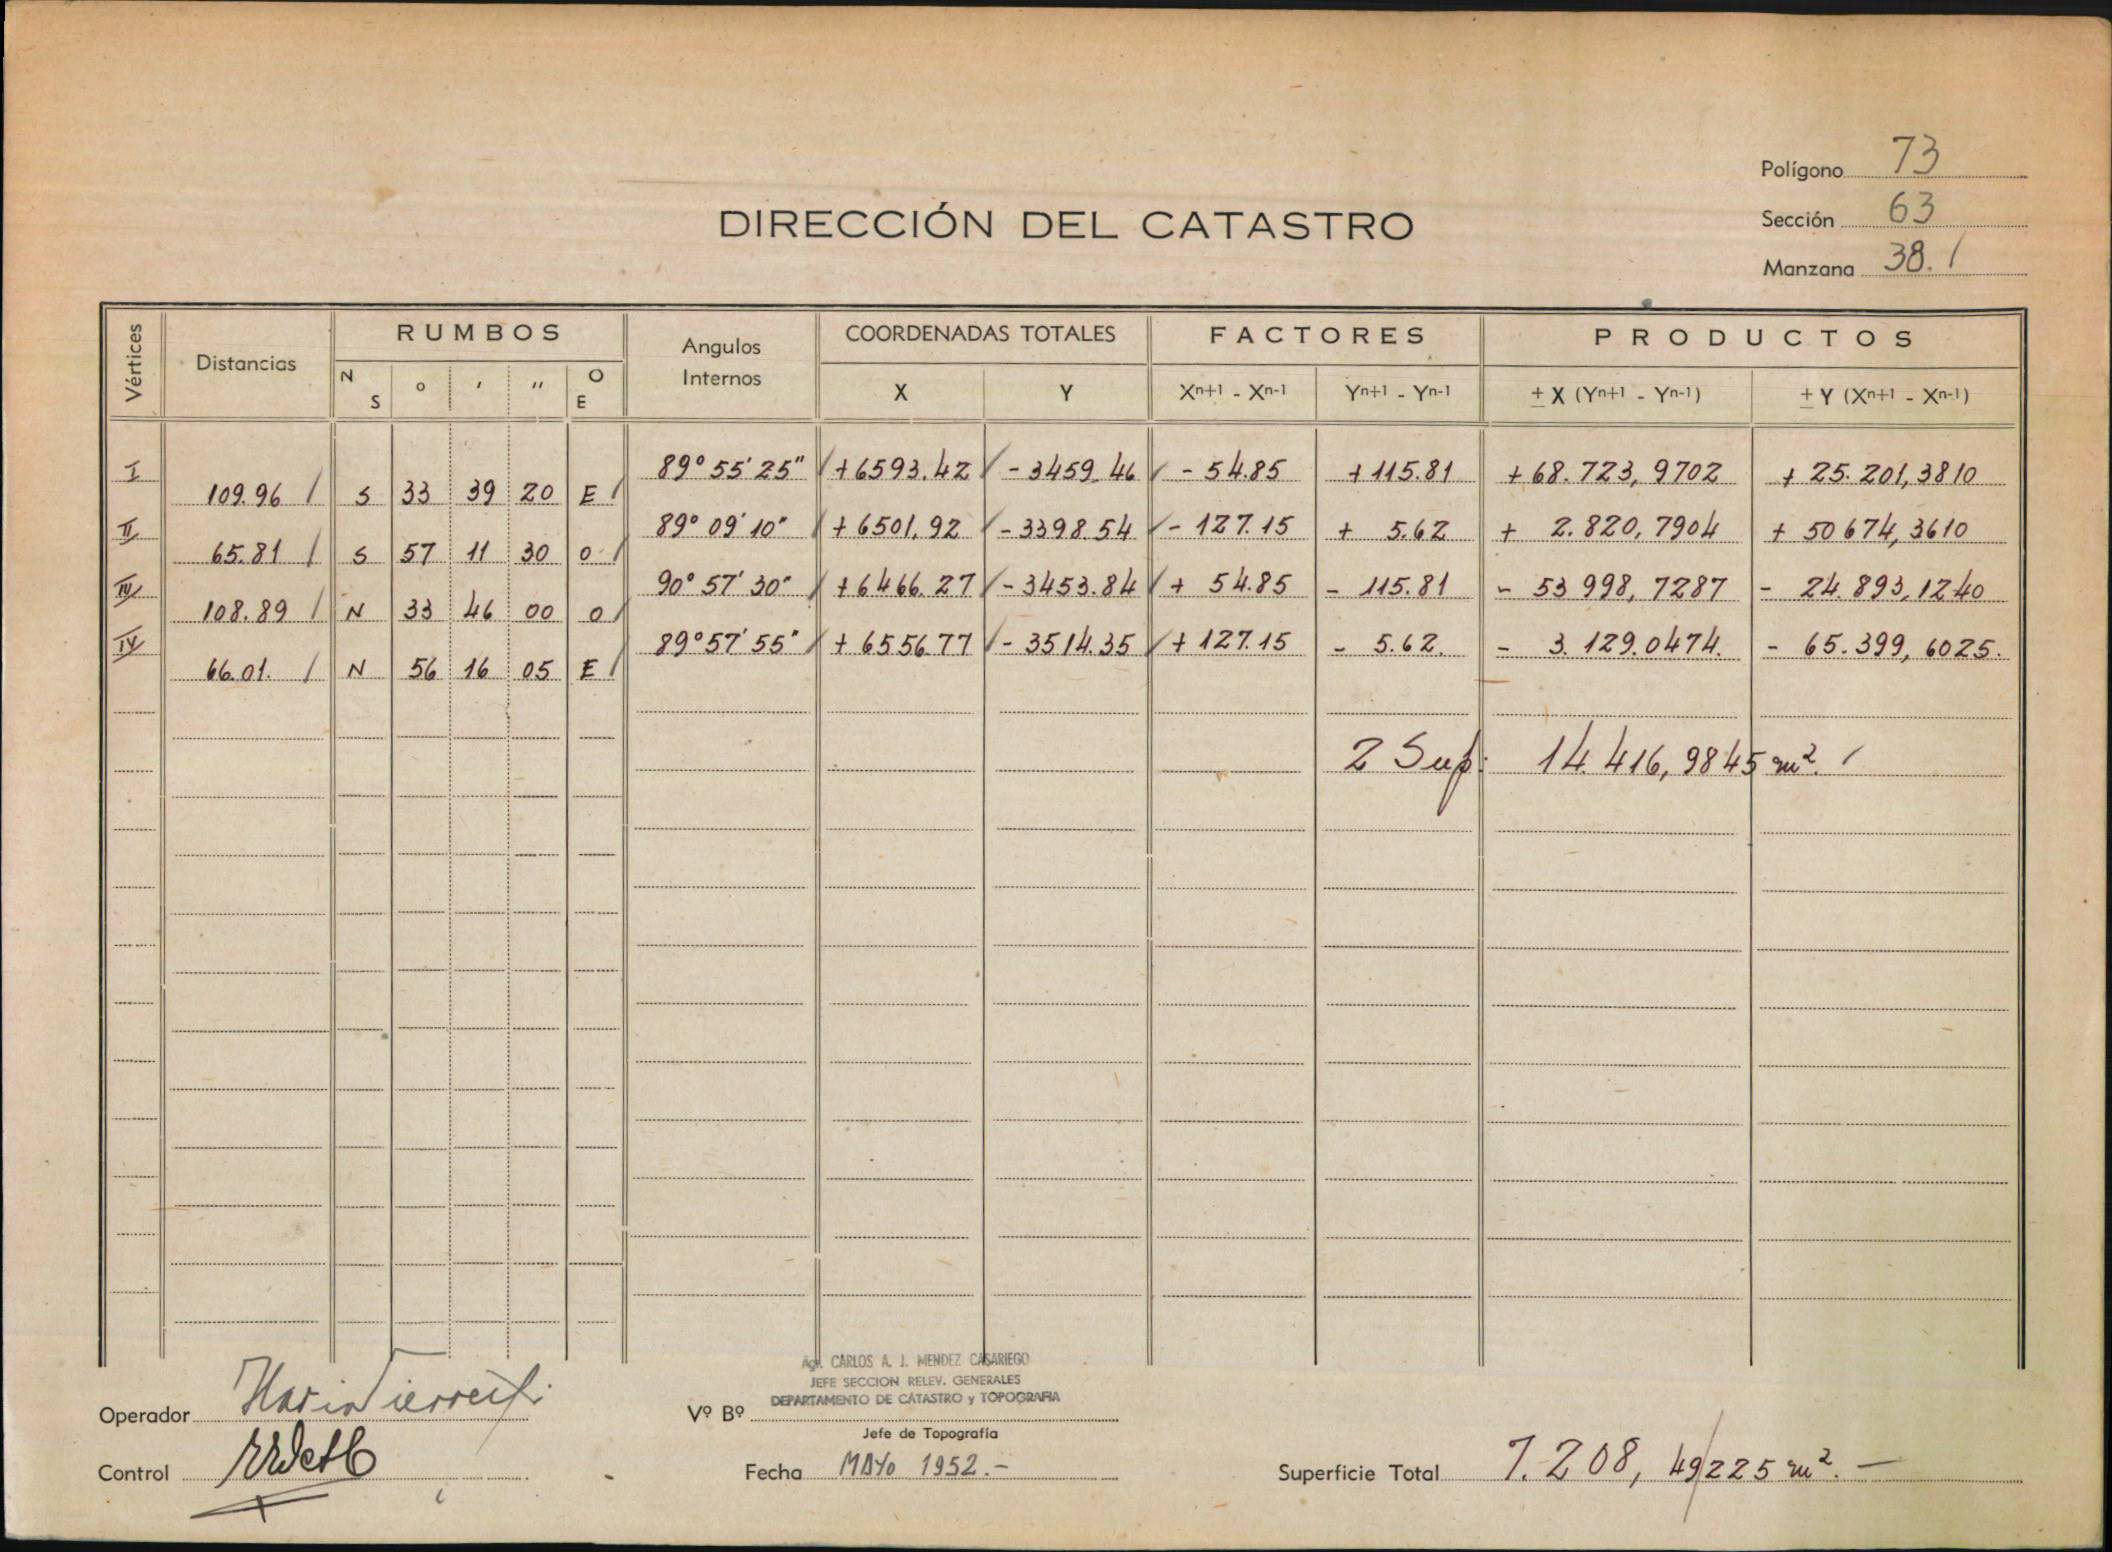 Polígono 73
DIRECCIÓN DEL CATASTRO
Sección 63
Manzana 38.1
Vértices Distancias RUMBOS Angulos Internos COORDENADAS TOTALES FACTORES PRODUCTOS
N S ° ' " O E X Y Xn+1 - Xn-1 Yn+1 - Yn-1 ± X (Yn+1 - Yn-1) ± Y (Xn+1 - Xn-1)
I 89° 55' 25" +6593.42 -3459.46 -54.85 +115.81 +68.723,9702 +25.201,3810
109.96 S 33 39 20 E
II 89° 09' 10" +6501,92 -3398.54 -127.15 + 5.62 + 2.820,7904 + 50674,3610
65.81 S 57 11 30 O
90° 57' 30" +6466.27 -3453.84 + 54.85 - 115.81 - 53998,7287 - 24.893,1240
108.89 N 33 46 00 O
IV 89° 57' 55" + 6556.77 - 3514.35 + 127.15 - 5.62. - 3.129.0474. - 65.399,6025.
66.01. N 56 16 05 E
2 Sup: 14.416,9845 m².
Agr. CARLOS A. J. MENDEZ CASARIEGO
JEFE SECCION RELEV. GENERALES
DEPARTAMENTO DE CATASTRO y TOPOGRAFIA
Operador Vº Bº
Jefe de Topografía
Control Fecha MAYO 1952.- Superficie Total 7.208,49225 m². —